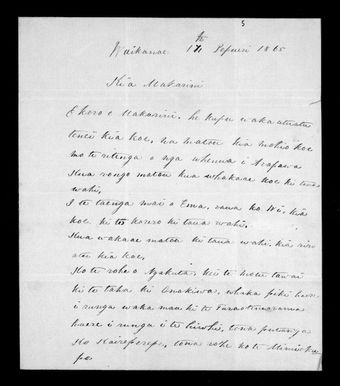 5
Waikanae 17th Pepueri 1865
Kia Makarini
E koro e Makarini, he kupu whakaatuatu
tenei kia koe, na matou kia mohio koe
mo te ritenga o nga whenua i Arapawa
Kua rongo matou kua whakaae koe ki tena
wahi.
I te taenga mai o Ema, raua ko Wi, kia
koe ki te korero ki taua wahi.
Kua wakaae matou ki taua wahi kia riro
atu kia koe.
Ko te rohe o
ki te taha ki Anakiwa, whaka piki
i runga waka mau ki te
haere i runga i te hiwihi, tona putanga
Ko Kaireperepe, tona rohe ko te